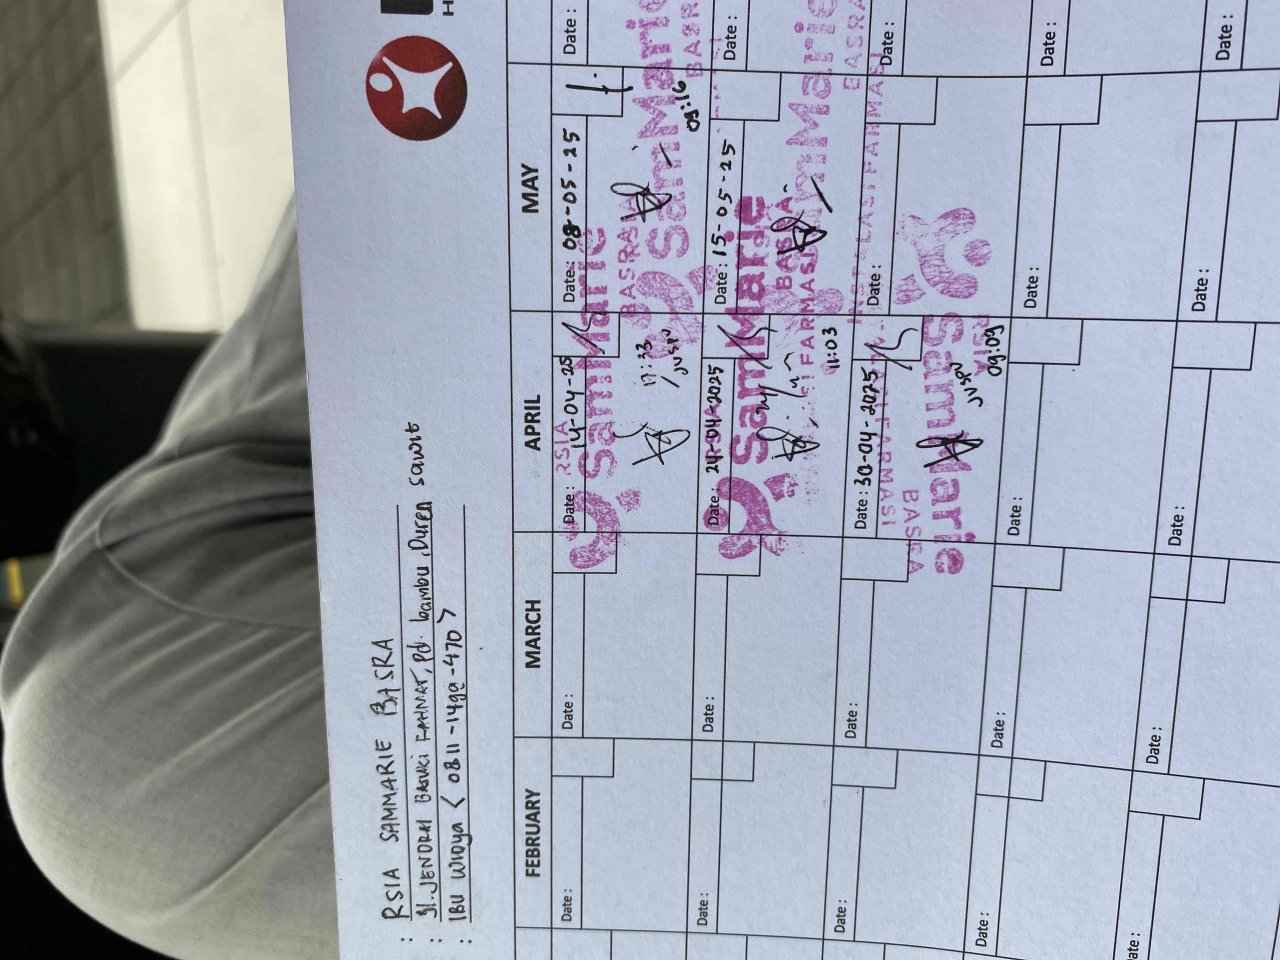 : RSIA SAMMARIE BASRA
: Jl. JENDRAL BASUKI RAHMAT, Pd. bambu, Duren sawit
: IBU WIDYA < 0811-1499-470 >
H
FEBRUARY MARCH APRIL MAY
Date : Date : Date : 14-04-25 Date : 08-05-25 Date :
RSIA
SamMarie
BASRA
17:33
JUSPU
RSIA
SamMarie
BASRA
09:16
Date : Date : Date : 24-04-2025 Date : 15-05-25 Date :
SamMarie
BASRA
FARMASI
11:03
SamMarie
BASRA
Date : Date : Date : 30-04-2025 Date : Date :
FARMASI
INSTALASI FARMASI
RSIA
SamMarie
BASRA
JUSPU
09:09
Date : Date : Date : Date : Date :
ate : Date : Date : Date : Date :